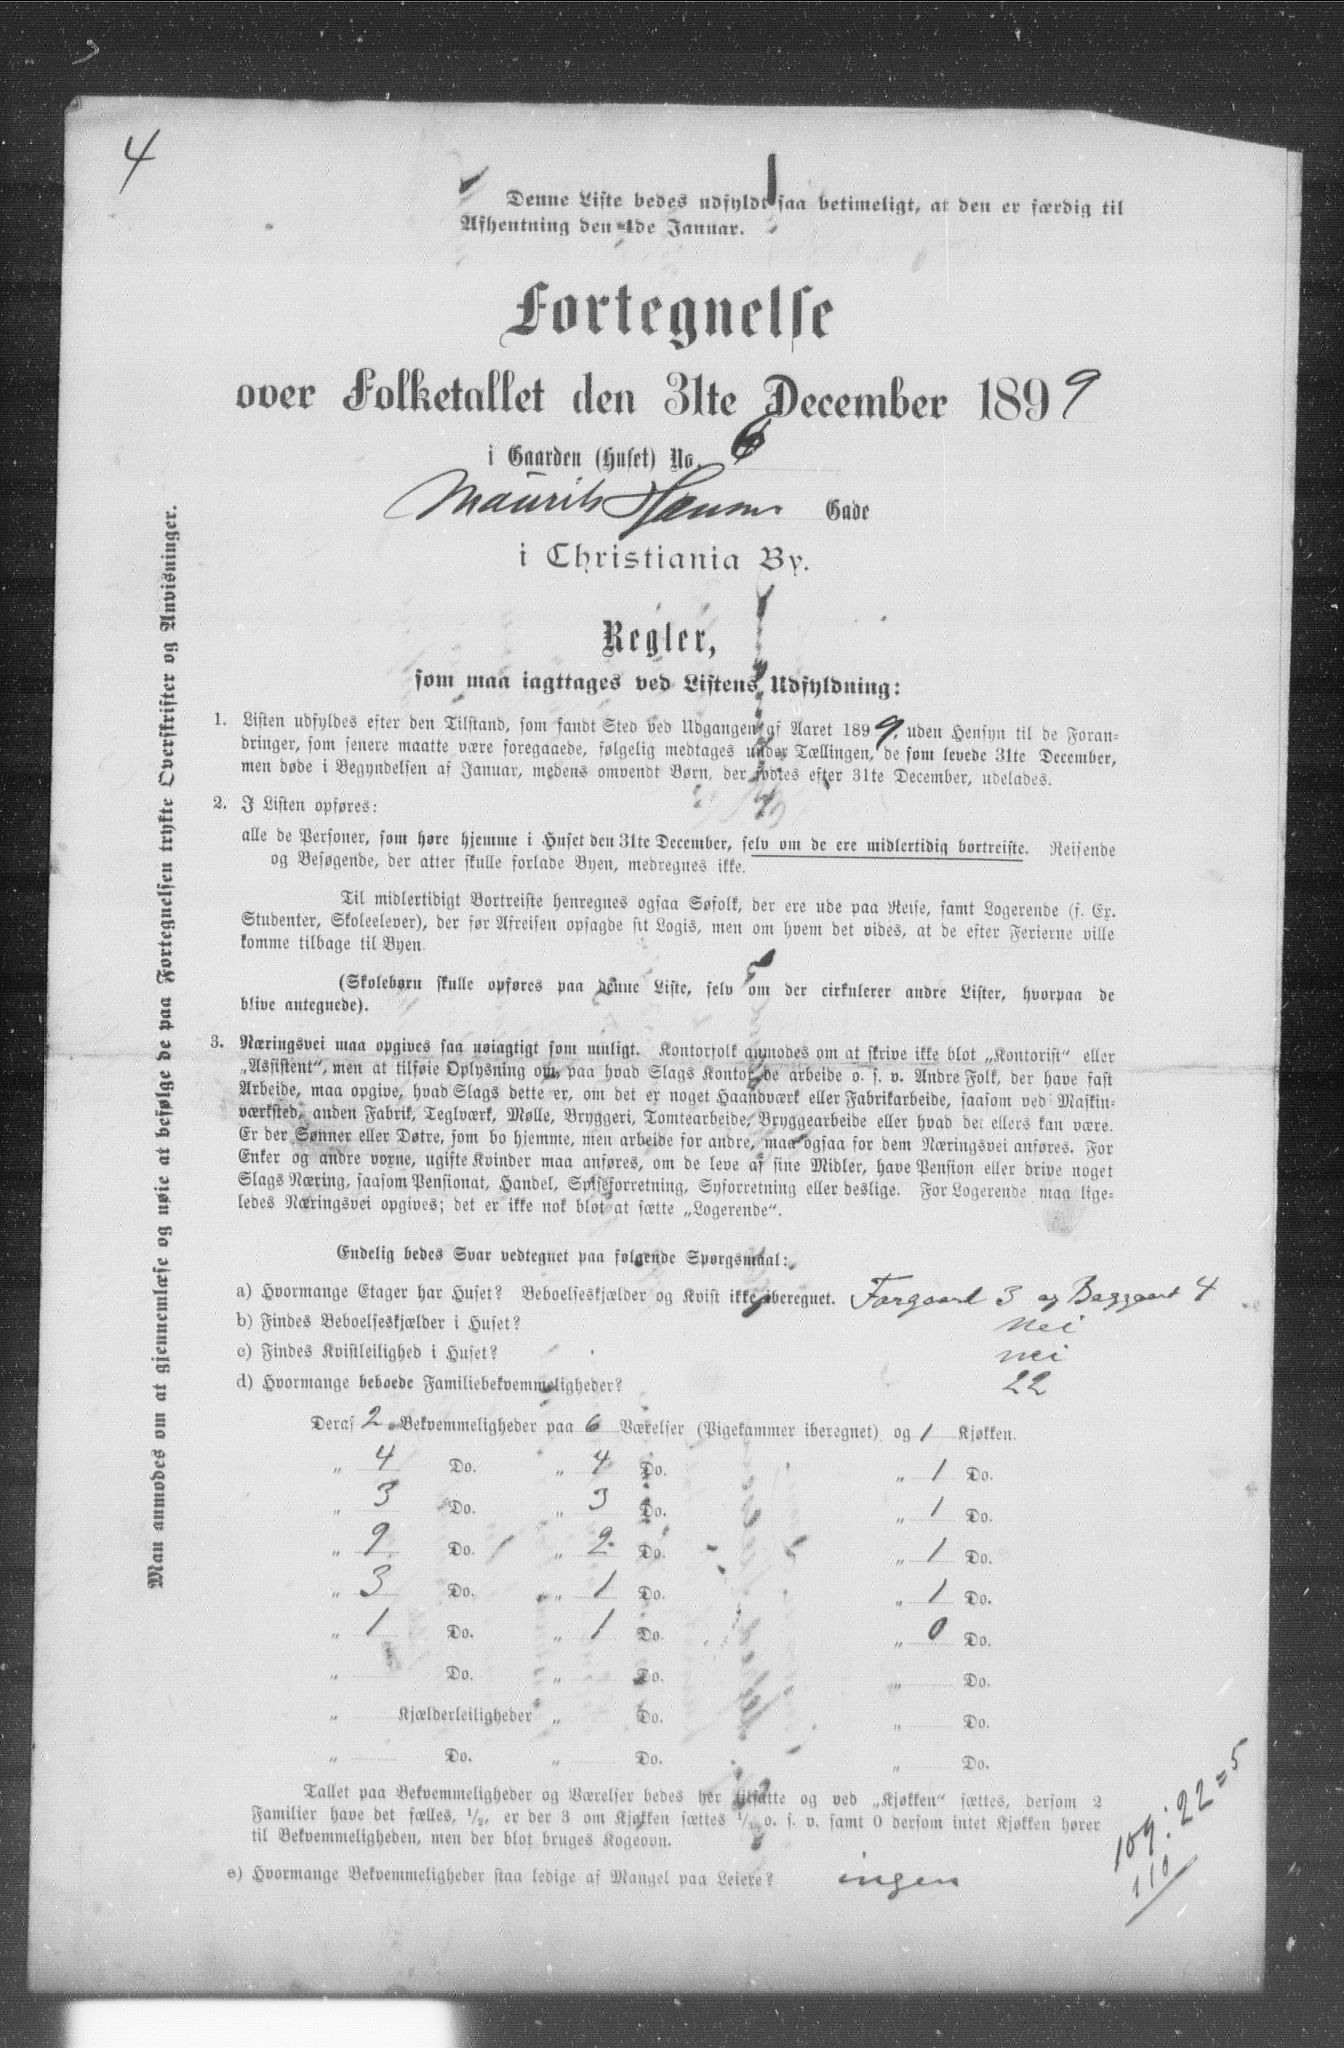 4
Denne Liste bedes udfyldt saa betimeligt, at den er færdig til
Afhentning den 4de Januar.
Fortegnelse
over Folketallet den 31te December 1899
i Gaarden (Huset) No. 6
Maurits Hansens Gade
i Christiania By.
Regler,
som maa iagttages ved Listens Udfyldning:
1. Listen udfyldes efter den Tilstand, som fandt Sted ved Udgangen af Aaret 1899, uden Hensyn til de Foran-
dringer, som senere maatte være foregaaede, følgelig medtages under Tællingen, de som levede 31te December,
men døde i Begyndelsen af Januar, medens omvendt Børn, der fødtes efter 31te December, udelades.
2. I Listen opføres:
alle de Personer, som høre hjemme i Huset den 31te December, selv om de ere midlertidig bortreiste. Reisende
og Besøgende, der atter skulle forlade Byen, medregnes ikke.
Til midlertidigt Bortreiste henregnes ogsaa Søfolk, der ere ude paa Reise, samt Logerende (f. Ex.
Studenter, Skoleelever), der før Afreisen opsagde sit Logis, men om hvem det vides, at de efter Ferierne ville
komme tilbage til Byen.
(Skolebørn skulle opføres paa denne Liste, selv om der cirkulerer andre Lister, hvorpaa de
blive antegnede).
3. Næringsvei maa opgives saa nøiagtigt som muligt. Kontorfolk anmodes om at skrive ikke blot „Kontorist“ eller
„Assistent“, men at tilføie Oplysning om, paa hvad Slags Kontor de arbeide o. s. v. Andre Folk, der have fast
Arbeide, maa opgive, hvad Slags dette er, om det er noget Haandværk eller Fabrikarbeide, saasom ved Maskin-
værksted, anden Fabrik, Teglværk, Mølle, Bryggeri, Tomtearbeide, Bryggearbeide eller hvad det ellers kan være.
Er der Sønner eller Døtre, som bo hjemme, men arbeide for andre, maa ogsaa for dem Næringsvei anføres. For
Enker og andre voxne, ugifte Kvinder maa anføres, om de leve af sine Midler, have Pension eller drive noget
Slags Næring, saasom Pensionat, Handel, Spiseforretning, Syforretning eller deslige. For Logerende maa lige-
ledes Næringsvei opgives; det er ikke nok blot at sætte „Logerende“.
Endelig bedes Svar vedtegnet paa følgende Spørgsmaal:
a) Hvormange Etager har Huset? Beboelseskjælder og Kvist ikke iberegnet. Forgaard 3 og Baggaard 4
b) Findes Beboelseskjælder i Huset? Nei
c) Findes Kvistleilighed i Huset? nei
d) Hvormange beboede Familiebekvemmeligheder? 22
Deraf 2 Bekvemmeligheder paa 6 Værelser (Pigekammer iberegnet) og 1 Kjøkken.
„ 4 Do. „ 4 Do. „ 1 Do.
„ 3 Do. „ 3 Do. „ 1 Do.
„ 9 Do. „ 2 Do. „ 1 Do.
„ 3 Do. „ 1 Do. „ 1 Do.
„ 1 Do. „ 1 Do. „ 0 Do.
„ Do. „ Do. „ Do.
„ Kjælderleiligheder „ Do. „ Do.
„ Do. „ Do. „ Do.
Tallet paa Bekvemmeligheder og Værelser bedes her tilsatte og ved „Kjøkken“ sættes, dersom 2
Familier have det fælles, 1/2, er der 3 om Kjøkken sættes 1/3 o. s. v. samt 0 dersom intet Kjøkken hører
til Bekvemmeligheden, men der blot bruges Kogeovn.
e) Hvormange Bekvemmeligheder staa ledige af Mangel paa Leiere? ingen
109 : 22 = 5
110
Man anmodes om at gjennemlæse og nøie at befølge de paa Fortegnelsen trykte Overskrifter og Anvisninger.